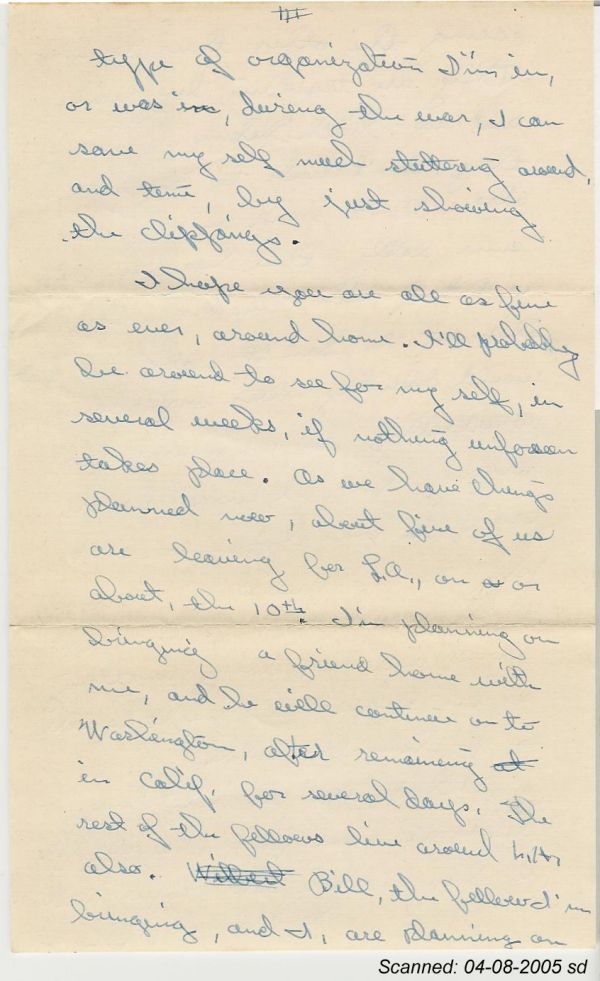 III
type of organization I'm in,
or was in, during the war, I can
save my self much stuttering around,
and time, by just showing
the clippings.
I hope you are all as fine
as ever, around home. I'll probably
be around to see for my self, in
several weeks, if nothing unforseen
takes place. As we have things
planned now, about five of us
are leaving for L.A., on or
about, the 10th. I'm planning on
bringing a friend home with
me, and he will continue on to
Washington, after remaining at
in Calif. for several days. The
rest of the fellows live around L.A.
also. Wilbert Bill, the fellow I'm
bringing, and I, are planning on
Scanned: 04-08-2005 sd